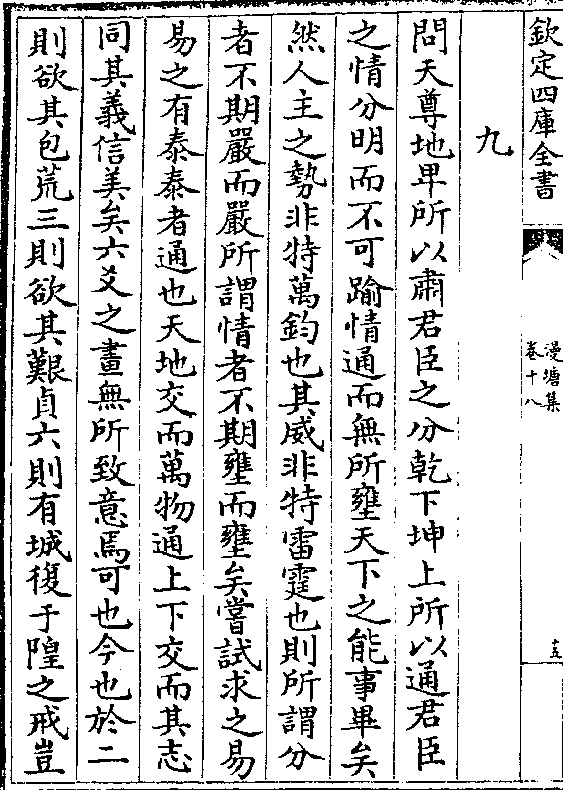 欽定四庫全書
漫塘集
卷十八
十五
九
問天尊地卑所以肅君臣之分乾下坤上所以通君臣
之情分明而不可踰情通而無所壅天下之能事畢矣
然人主之勢非特萬鈞也其威非特雷霆也則所謂分
者不期嚴而嚴所謂情者不期壅而壅矣嘗試求之易
易之有泰泰者通也天地交而萬物通上下交而其志
同其義信美矣六爻之畫無所致意焉可也今也於二
則欲其包荒三則欲其艱貞六則有城復于隍之戒豈